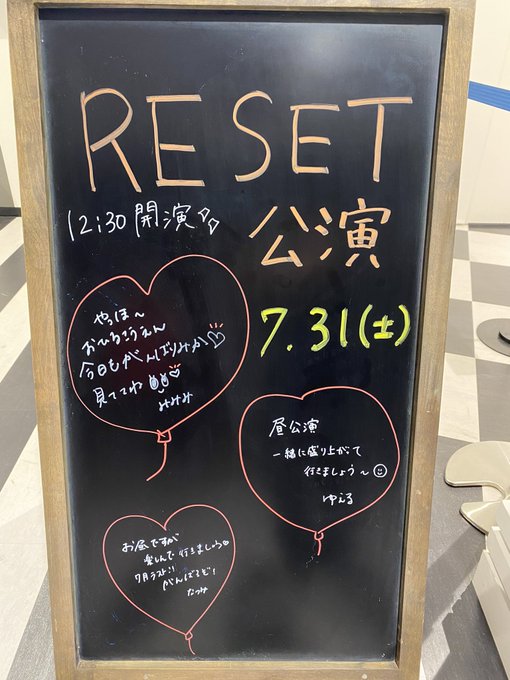 RESET
12:30開演
公演
7.31(土)
やっほ〜
おひるこうえん
今日もがんばりみか♡
見ててね
みみみ
昼公演
一緒に盛り上がって
行きましょう〜☺
ゆえる
お昼ですが
楽しんで行きましょう♡
7月ラスト!!
がんばるぞ!
なつみ